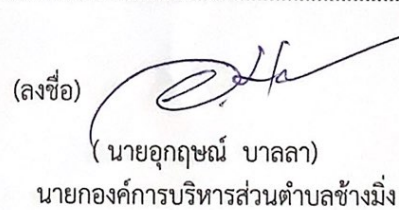 (ลงชื่อ)
( นายอุกฤษณ์ บาลลา)
นายกองค์การบริหารส่วนตำบลช้างมิ่ง